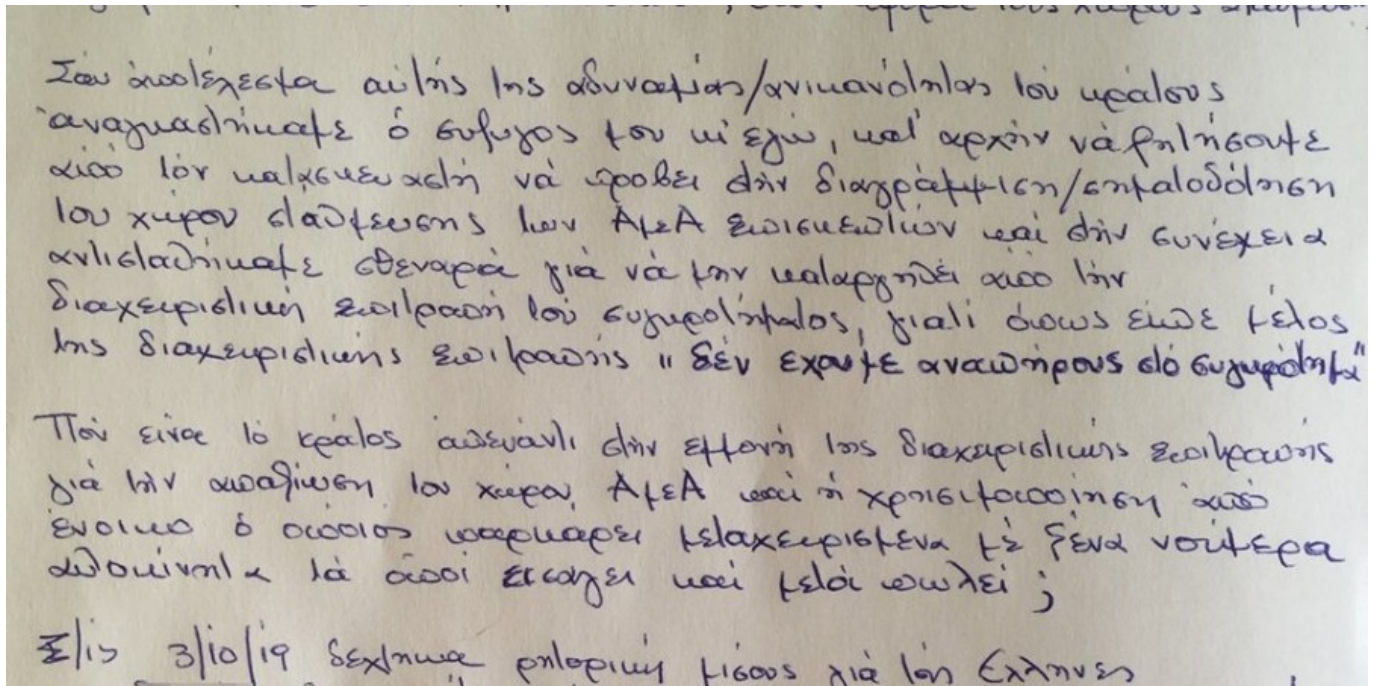 τους χώρους
Σαν ἀποτέλεσμα αὐτῆς της αδυναμίας/ανικανότητας τοῦ κράτους
ἀναγκαστήκαμε ὁ σύζυγος μου κι ἐγώ, κατ' αρχήν νὰ ζητήσουμε
ἀπό τὸν κατασκευαστή νὰ προβεί στὴν διαγράμμιση/σηματοδότηση
του χώρου στάθμευσης των ΑμεΑ ἐπισκεπτών καὶ στὴν συνέχεια
αντισταθήκαμε σθεναρά γιὰ νὰ μην καταργηθεί ἀπό τὴν
διαχειριστική ἐπιτροπή τοῦ συγκροτήματος, γιατί ὅπως εἶπε μέλος
της διαχειριστικής ἐπιτροπής " δέν ἔχουμε αναπήρους στό συγκρότημα"
Ποὺ είναι τὸ κράτος ἀπέναντι στὴν εμμονή της διαχειριστικής ἐπιτροπής
γιὰ τὴν απαξίωση του χώρου ΑμεΑ καὶ ἡ χρησιμοποίηση ἀπό
ἔνοικο ὁ ὁποίος παρκάρει μεταχειρισμένα μὲ ξένα νούμερα
αὐτοκίνητα τὰ ὁποί εισαγει καὶ μετὰ πωλεί ;
Στις 3/10/19 δέχτηκα ρητορική μίσους γιὰ τοὺς Ἕλληνες